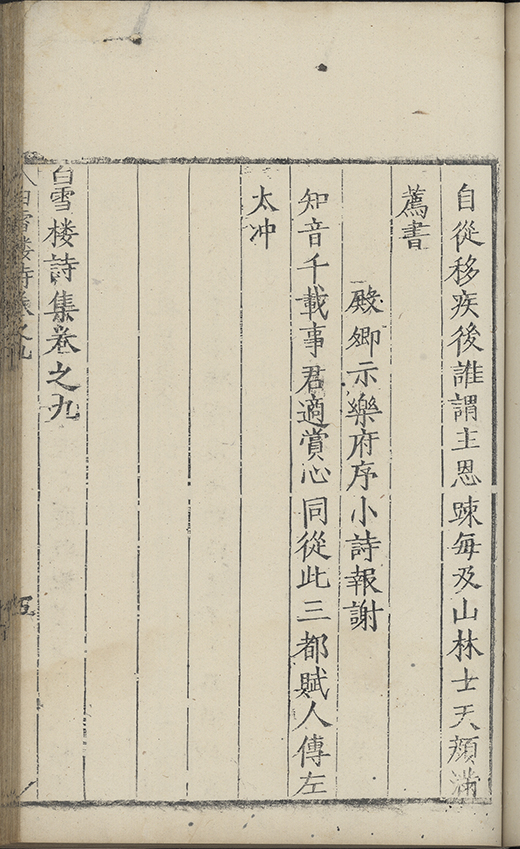 自從移疾後誰謂主恩踈每及山林士天顔滿
薦書
殿卿示樂府序小詩報謝
知音千載事君適賞心同從此三都賦人傳左
太冲
白雪楼詩集卷之九
白雪楼詩集卷之九